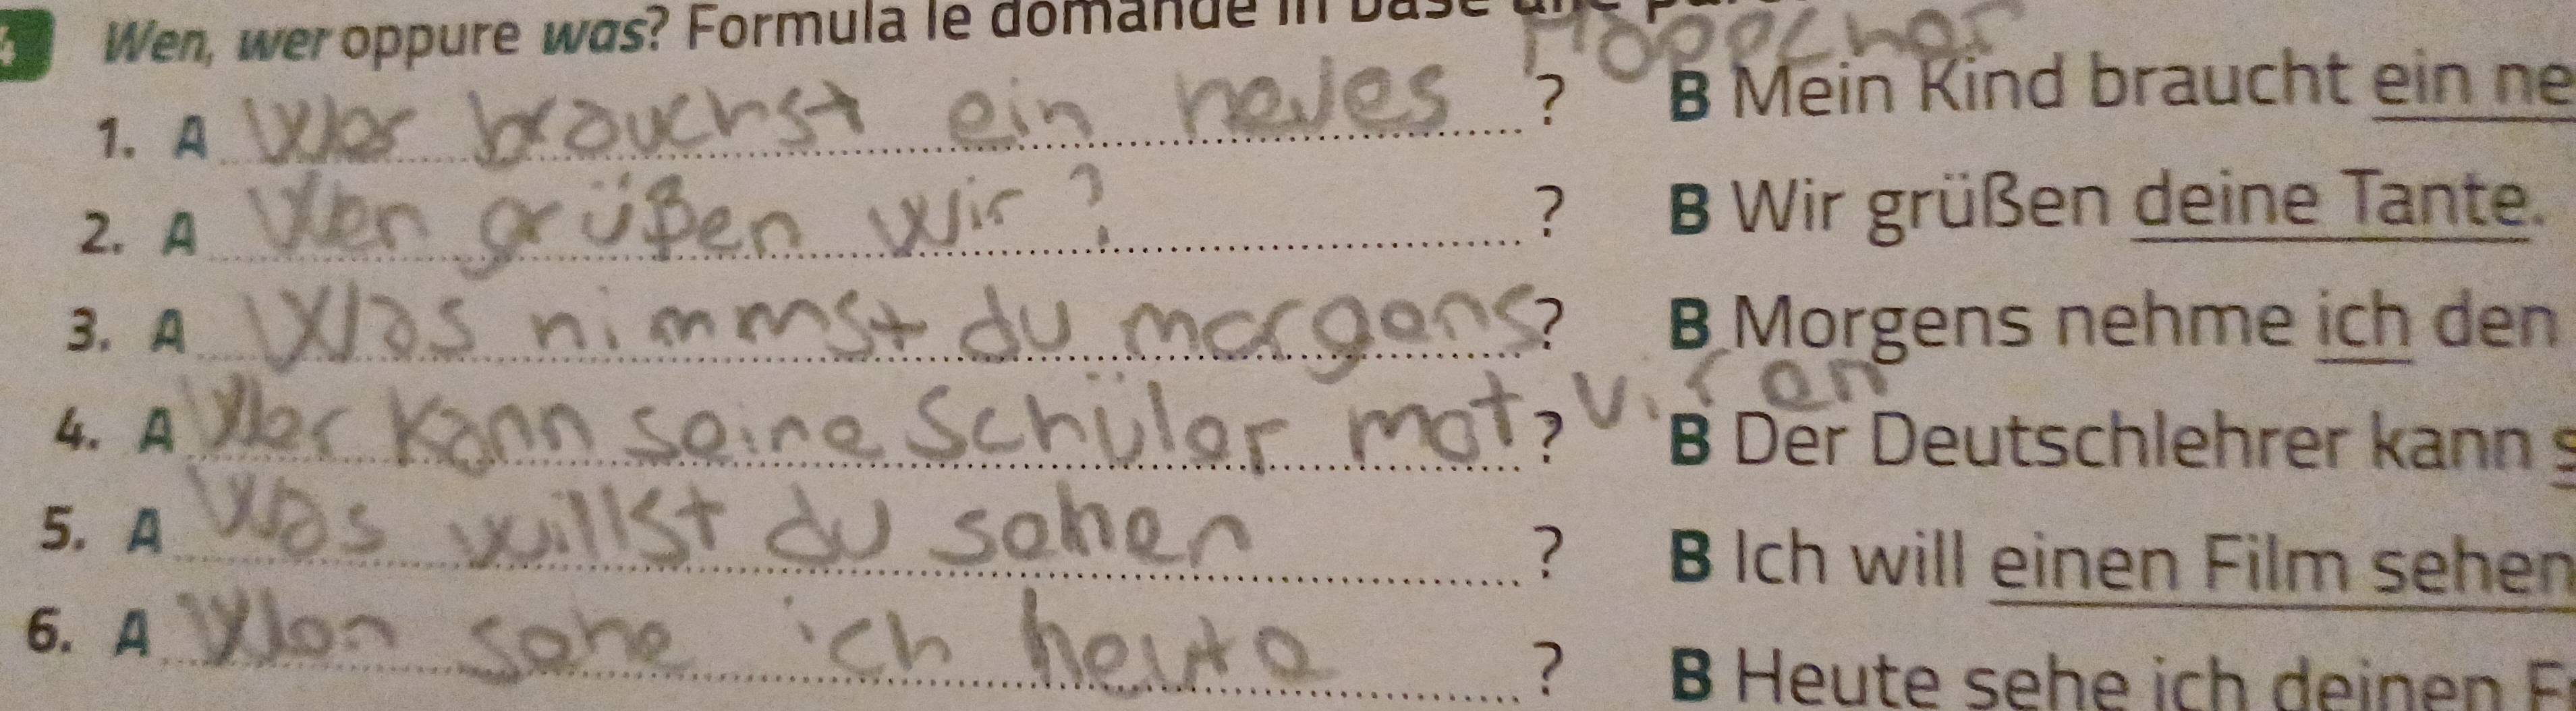 4 Wen, wer oppure was? Formula le domande in base alle
1. A Wer brauchst ein neues Hoppchor ? B Mein Kind braucht ein ne
2. A Wen grüßen wir? ? B Wir grüßen deine Tante.
3. A Was nimmst du morgens ? B Morgens nehme ich den
4. A Wer kann seine Schüler motviren ? B Der Deutschlehrer kann s
5. A Was willst du sehen ? B Ich will einen Film sehen
6. A Wen sehe ich heute ? B Heute sehe ich deinen F